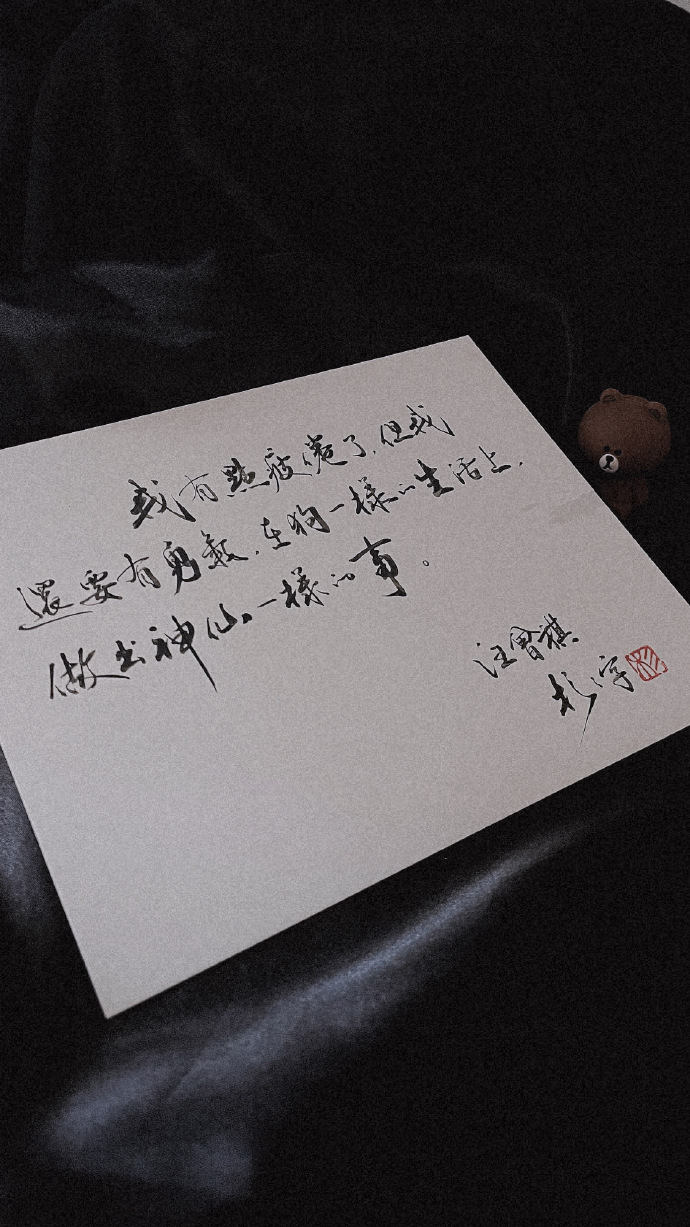 我有點疲倦了，但我
還要有勇氣，在狗一樣的生活上，
做出神仙一樣的事。
汪曾祺
杉字